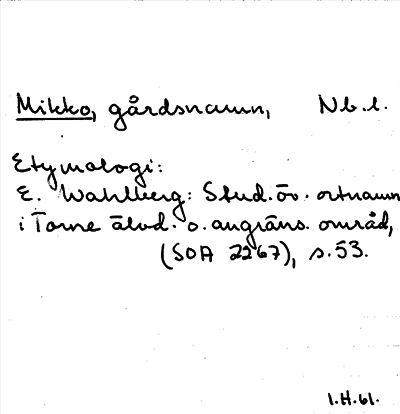 Mikko, gårdsnamn, Nb.l.
Etymologi:
E. Wahlberg: Stud. öv. ortnamn
i Torne älvd. o. angräns. områd,
(SOA 2267), s. 53.
1.H.61.